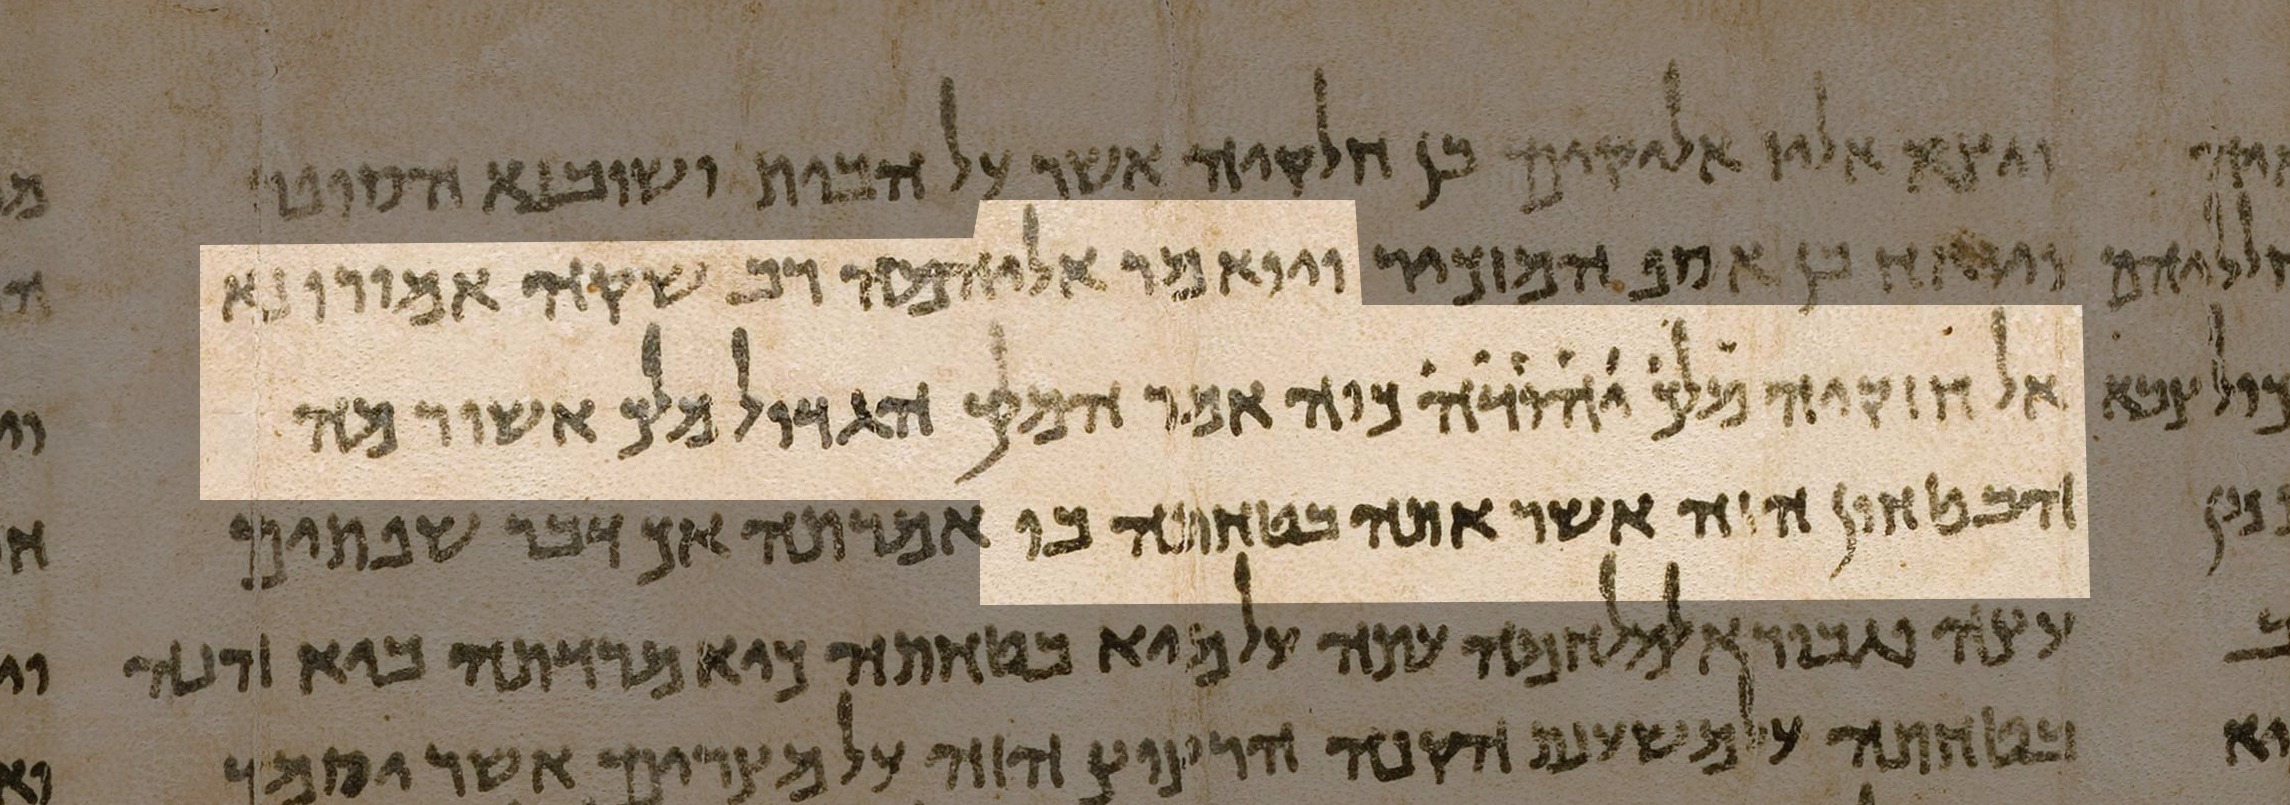 ויצא אליו אליקים בן חלקיה אשר על הבית ושובנא הסופר
ויואח בן אסף המזכיר ויואמר אליהמה רב שקה אמורו נא
אל חזקיה מלך יהודה כוה אמר המלך הגדול מלך אשור מה
הבטחון הזה אשר אתה בטחתה בו אמרתה אך דבר שפתים
עצה וגבורא למלחמה עתה על מיא בטחתה כיא מרדתה ביא הנה
בטחתה על משענת הקנה הרצוץ הזה על מצרים אשר יסמך